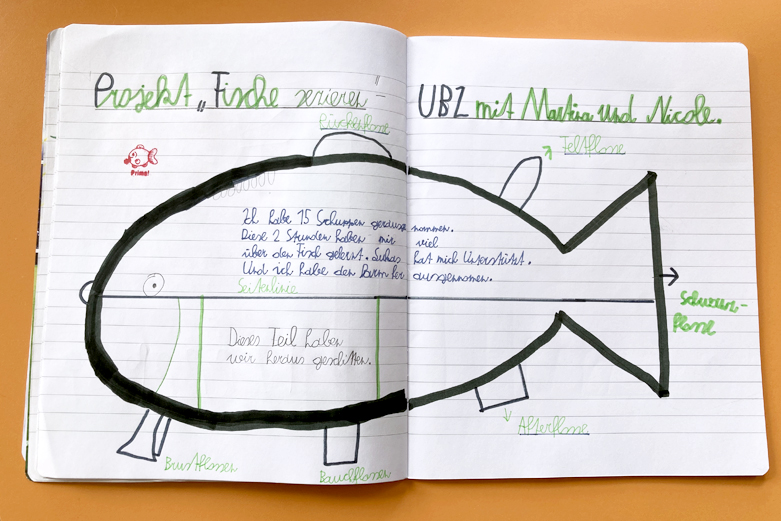 Projekt „Fische sezieren" – UBZ mit Martina und Nicole.
Rückenflosse
Fettflosse
Prima!
Ich habe 15 Schuppen gerausgenommen.
Diese 2 Stunden haben mir viel
über den Fisch gelernt. Lukas hat mich Unterstützt.
Und ich habe den Darm her ausgenommen.
Seitenlinie
Schwanz-
flosse
Dieses Teil haben
wir heraus geschitten.
Afterflosse
Brustflossen
Bauchflossen